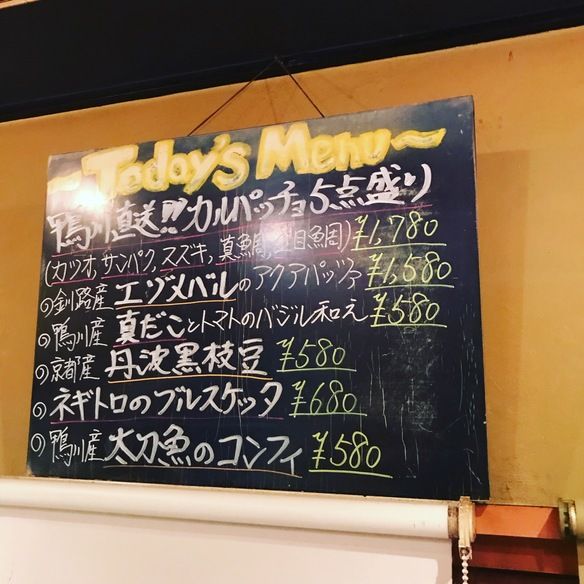 ~Today's Menu~
鴨川直送!! カルパッチョ5点盛り
(カツオ、サンパク、スズキ、真鯛、金目鯛) ¥1,780
釧路産 エゾメバルのアクアパッツァ ¥1,580
鴨川産 真だことトマトのバジル和え ¥580
京都産 丹波黒枝豆 ¥580
ネギトロのブルスケッタ ¥680
鴨川産 太刀魚のコンフィ ¥580